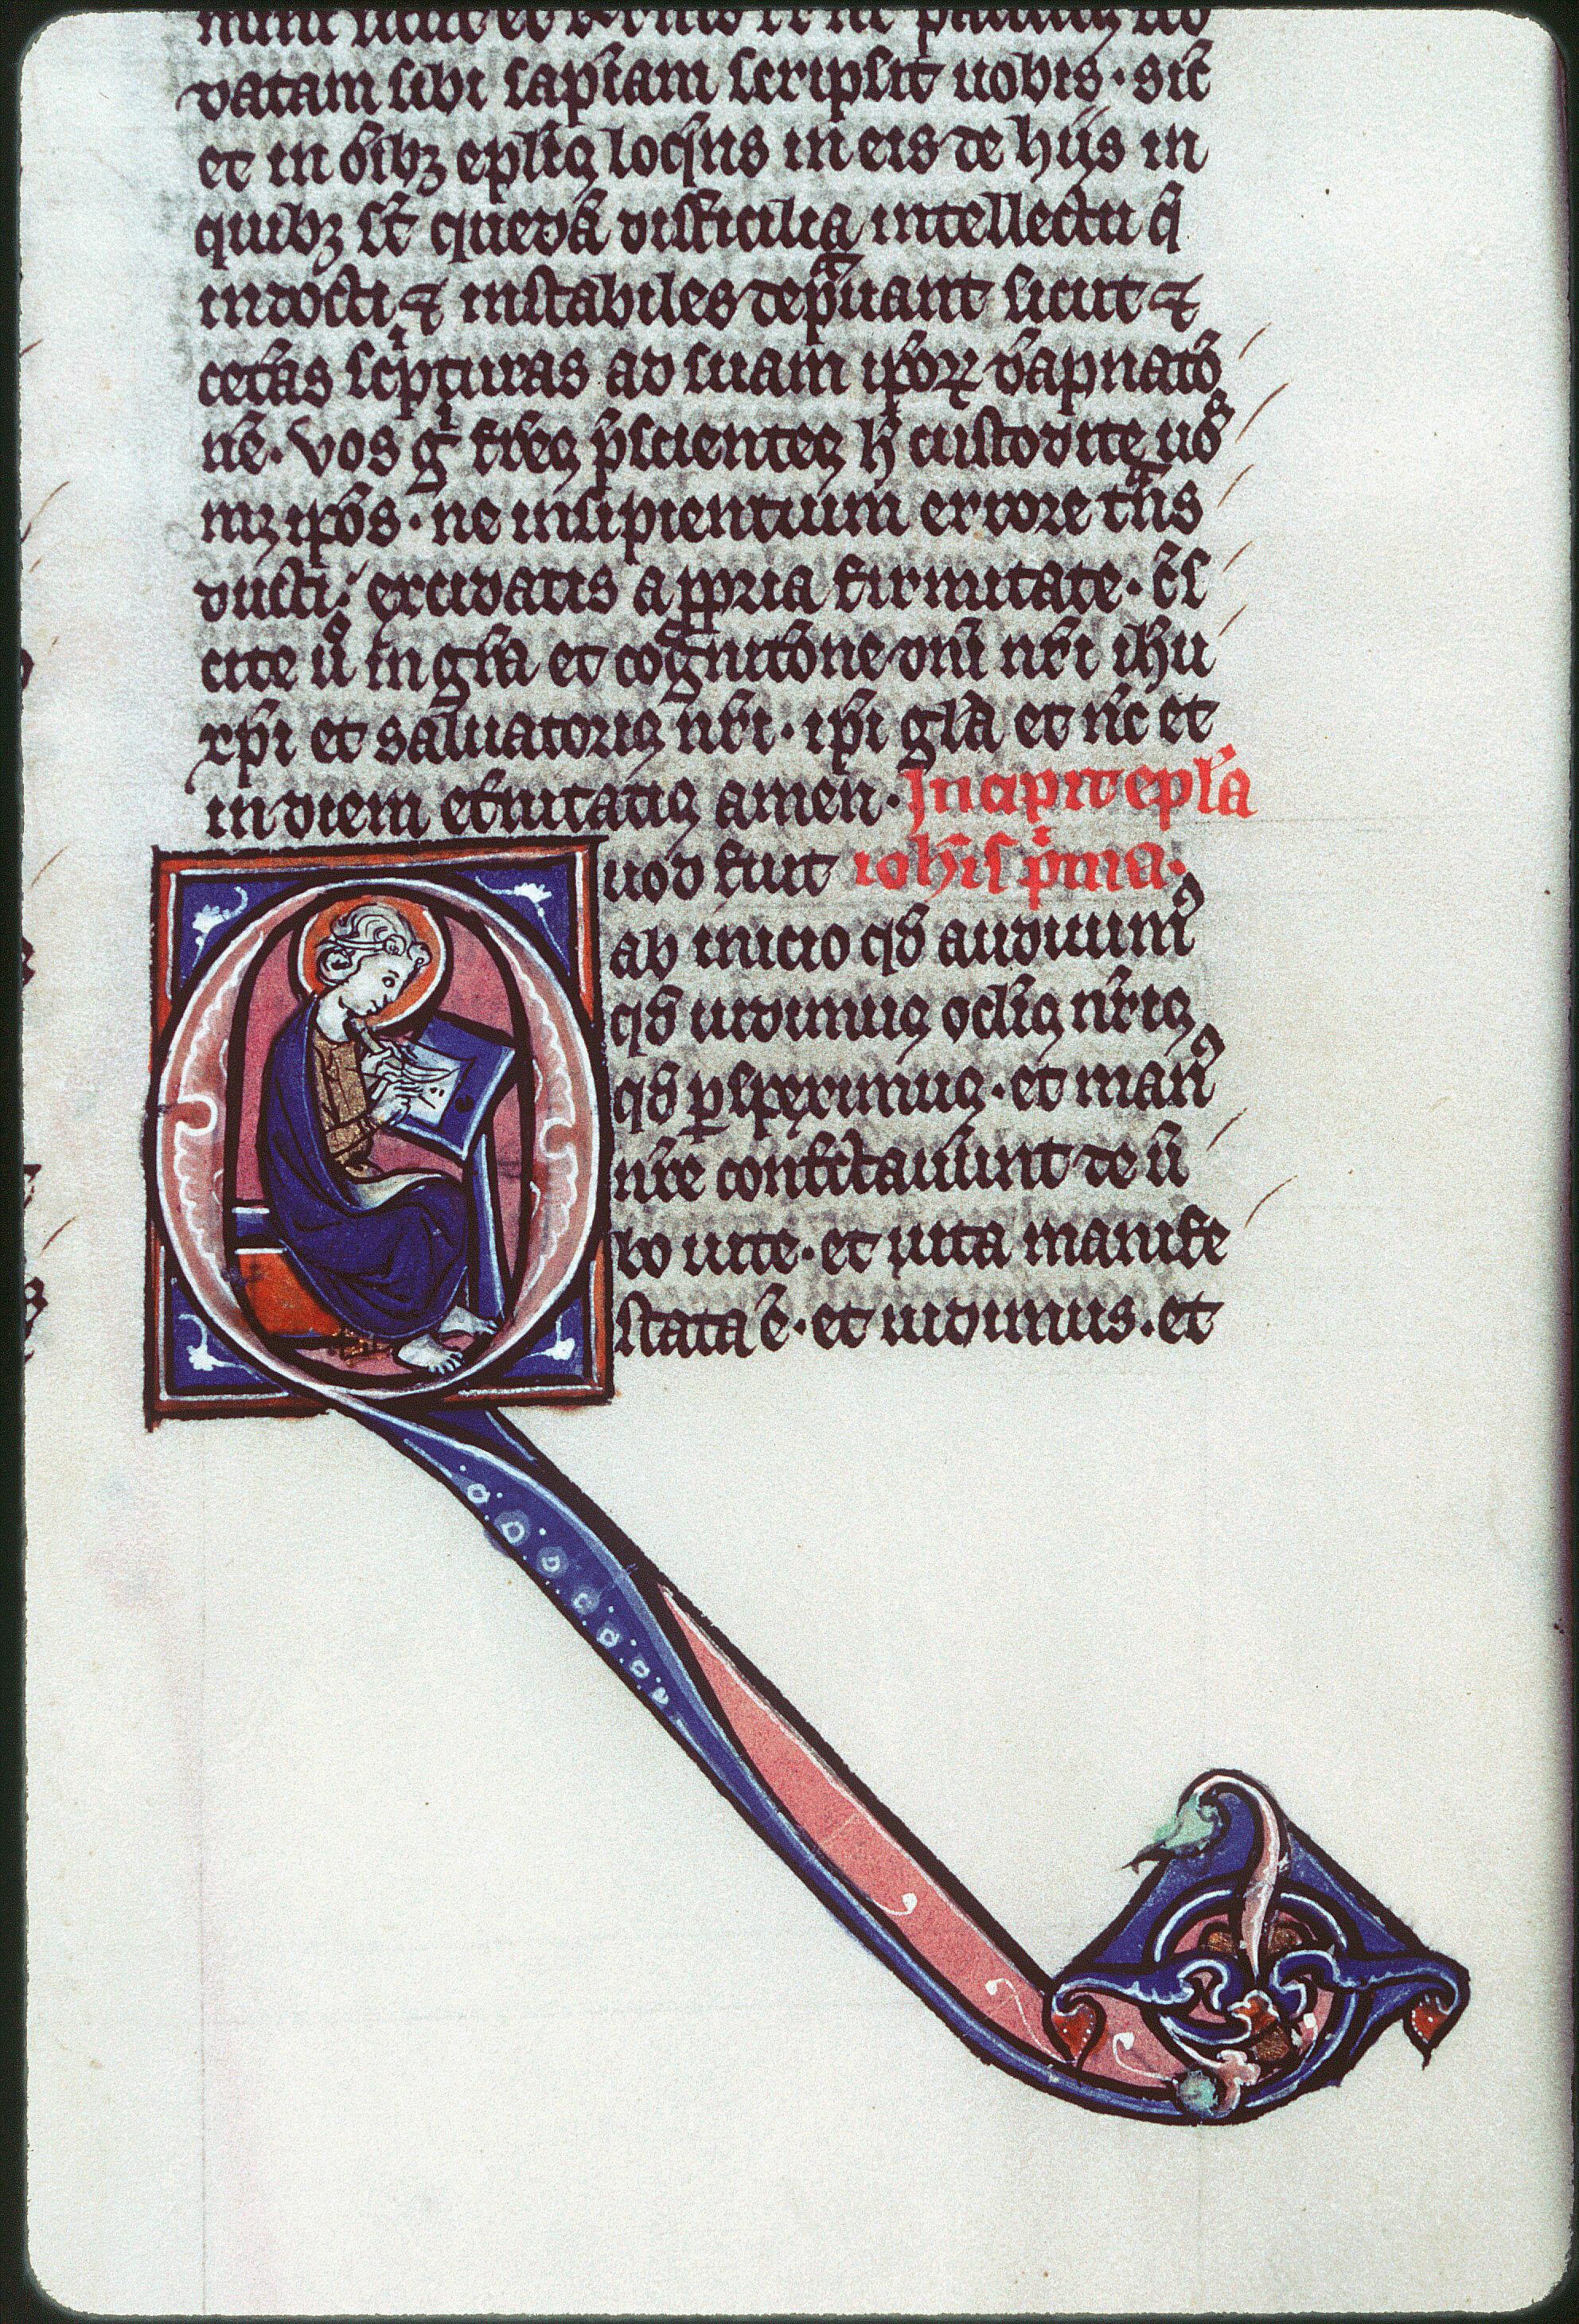 datam sibi sap̃iam scripsit uobis · sic̃
et in õibꝫ ep̃lis loq̃ns in eis de hiis in
quibꝫ st̃ quedã difficilia intellectu q̃
indocti ⁊ instabiles dep̃uant sicut ⁊
cet̃as sc̃pturas ad suam ip̃oꝝ dãpnatõ
nẽ · vos g̃ fr̃es p̃scientes h̃ custodite uõ
mꝫ ip̃os · ne insipientium errore t̃ns
ducti excidatis a ꝓpria firmitate · c̃s
cite ũ in gr̃a et cognitõne dñi nr̃i ih̃u
xp̃i et saluatoris nr̃i · ip̃i gl̃a et nc̃ et
in diem et̃nitatis amen · Incipit epl̃a
Quod fuit ioh̃is p̃ma ·
ab inicio qd̃ audiuimꝰ
qd̃ uidimus ocl̃is nr̃is
qd̃ ꝑspeximus · et manꝰ
nr̃e contc̃tauer̃unt de ũ
bo uite · et uita manife
stata ẽ · et uidimus · et